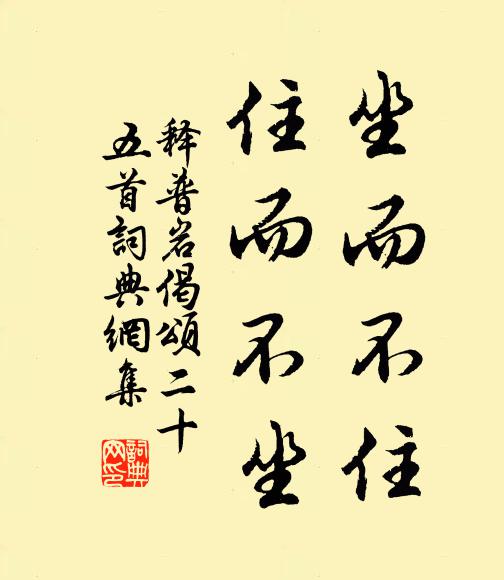 坐而不住
住而不坐
释普岩偈頌二十
五首詞典網集
詞典
网印